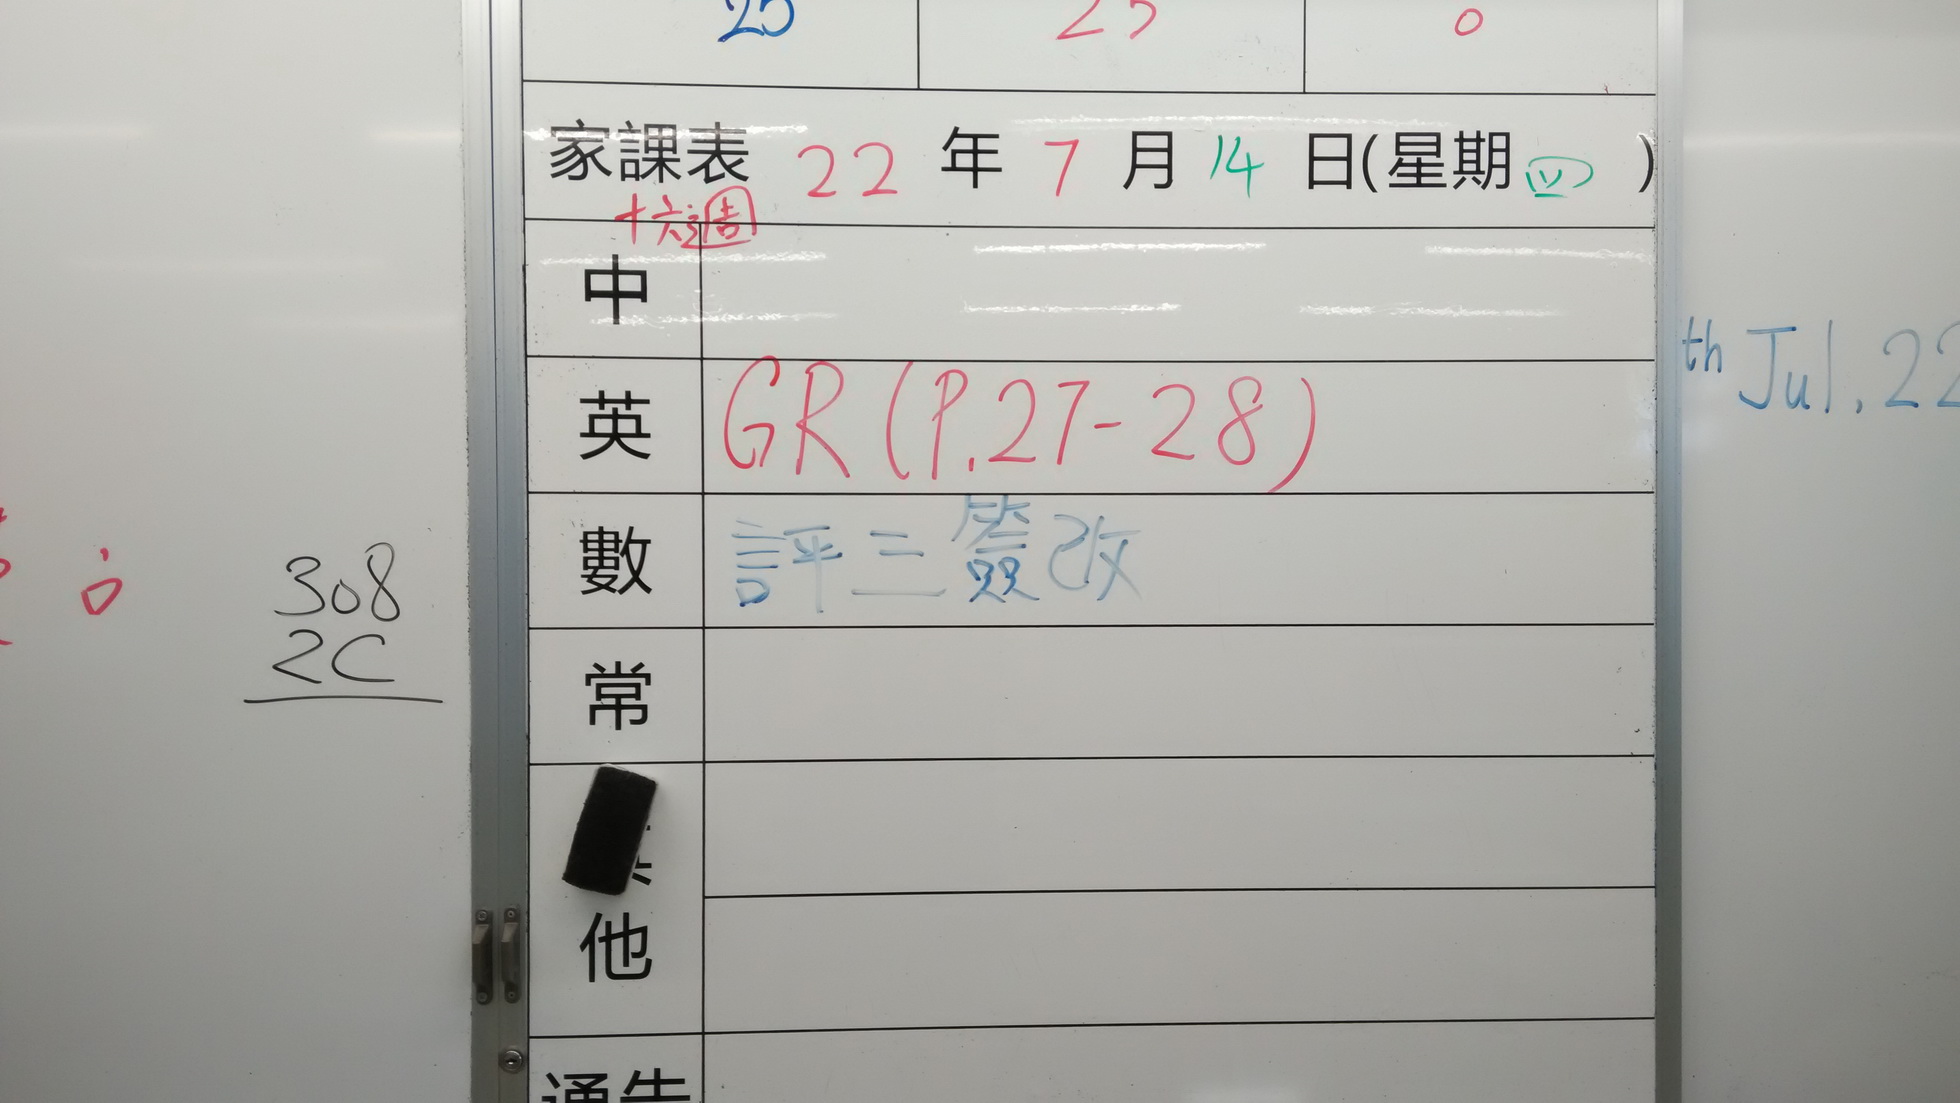 25 25 0
家課表 22 年 7 月 14 日(星期四)
十六週
中
英 GR (P.27-28)
數 評三簽改
常
他
通告
308
2C
th Jul, 22